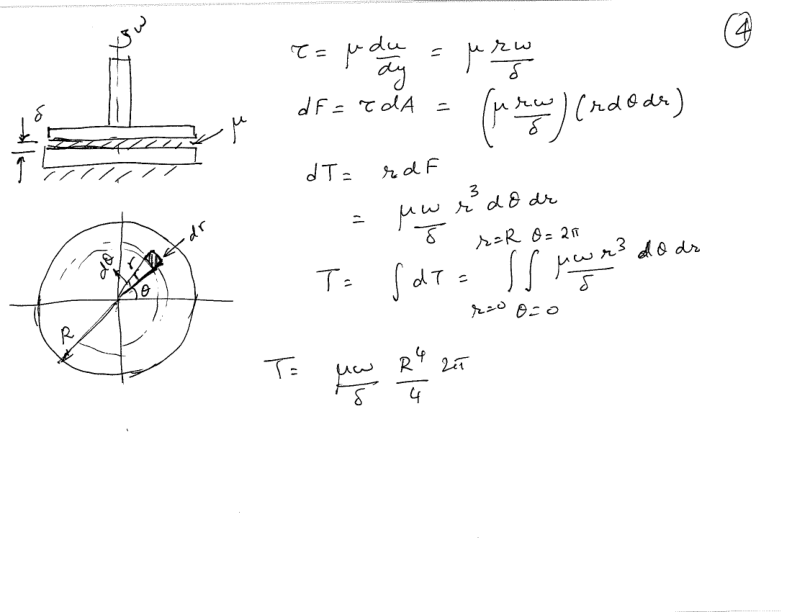 ④
ω
δ
μ
τ = μ du/dy = μ rω/δ
dF = τ dA = (μ rω/δ) (r dθ dr)
dT = r dF
= μω/δ r³ dθ dr
T = ∫ dT = ∫_{r=0}^{r=R} ∫_{θ=0}^{θ=2π} μω r³/δ dθ dr
dr
dθ
r
θ
R
T = μω/δ R⁴/4 2π